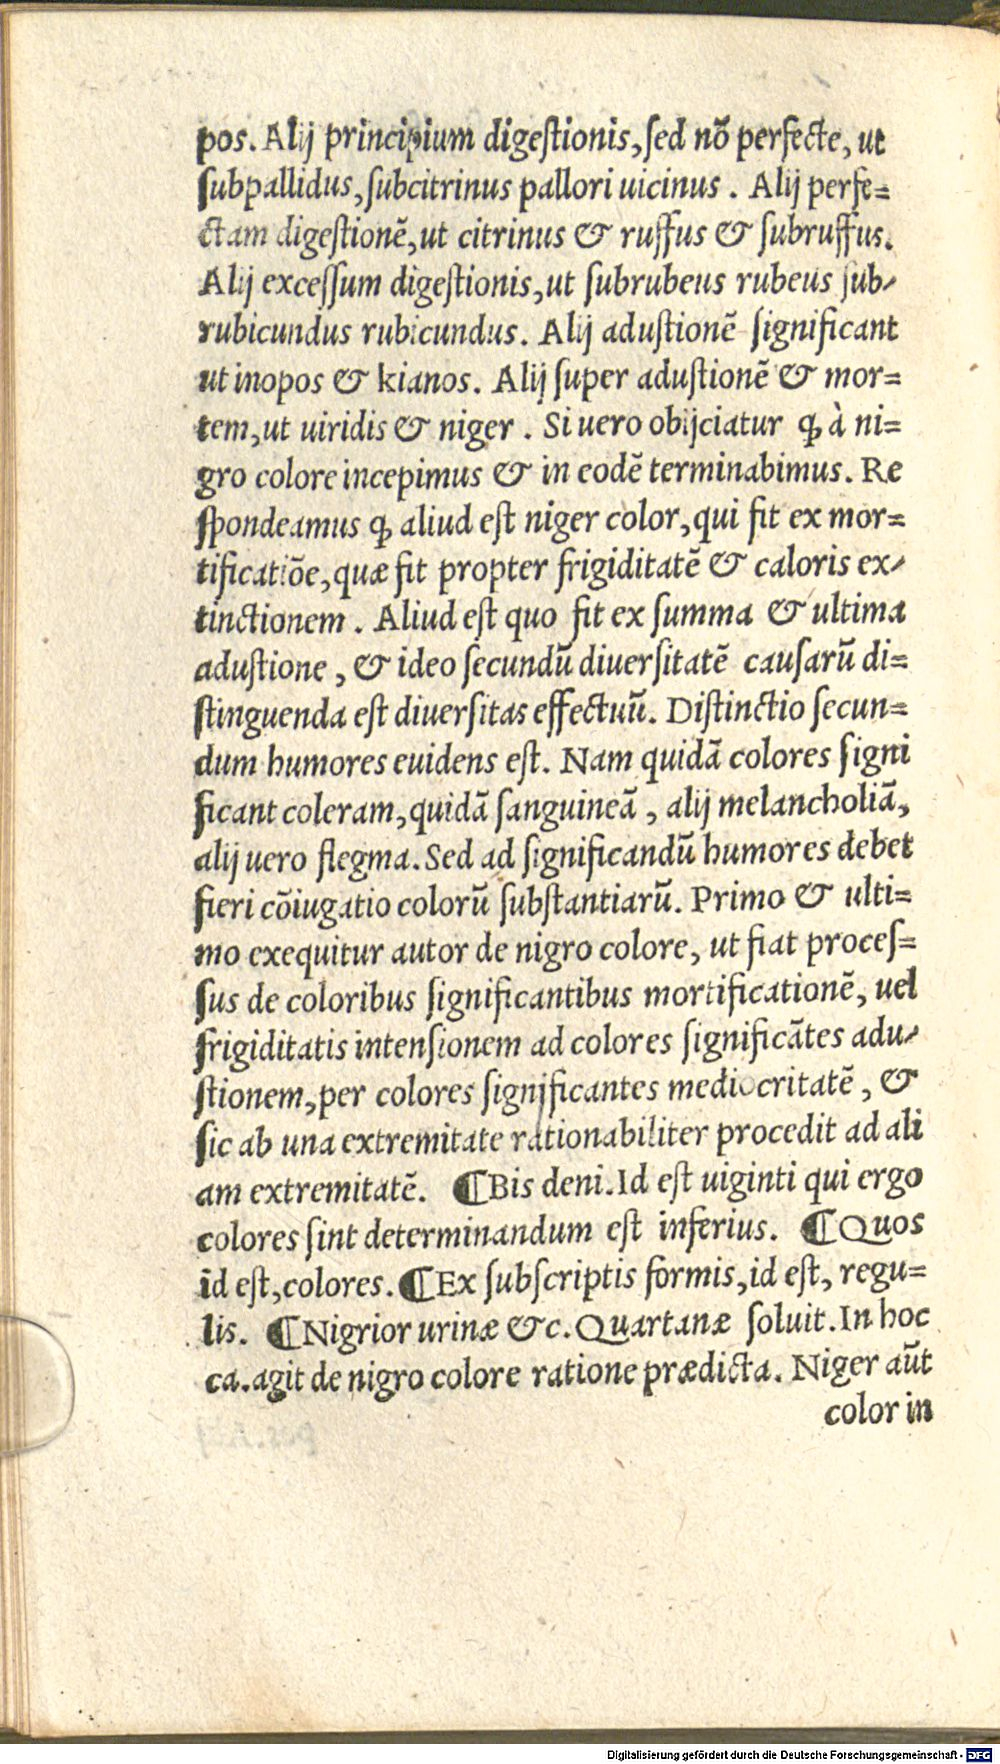 pos. Alij principium digeſtionis, ſed nõ perfecte, ut
ſubpallidus, ſubcitrinus pallori uicinus. Alij perfe=
ctam digeſtionẽ, ut citrinus & ruffus & ſubruffus.
Alij exceſſum digeſtionis, ut ſubrubeus rubeus ſub-
rubicundus rubicundus. Alij aduſtionẽ ſignificant
ut inopos & kianos. Alij ſuper aduſtionẽ & mor=
tem, ut uiridis & niger. Si uero obijciatur ꝙ à ni=
gro colore incepimus & in eodẽ terminabimus. Re
ſpondeamus ꝙ aliud eſt niger color, qui fit ex mor=
tificatiõe, quæ fit propter frigiditatẽ & caloris ex-
tinctionem. Aliud eſt quo fit ex ſumma & ultima
aduſtione, & ideo ſecundũ diuerſitatẽ cauſarũ di=
ſtinguenda eſt diuerſitas effectuũ. Diſtinctio ſecun=
dum humores euidens eſt. Nam quidã colores ſigni
ficant coleram, quidã ſanguineã, alij melancholiã,
alij uero flegma. Sed ad ſignificandũ humores debet
fieri cõiugatio colorũ ſubſtantiarũ. Primo & ulti=
mo exequitur autor de nigro colore, ut fiat proceſ=
ſus de coloribus ſignificantibus mortificationẽ, uel
frigiditatis intenſionem ad colores ſignificãtes adu-
ſtionem, per colores ſignificantes mediocritatẽ, &
ſic ab una extremitate rationabiliter procedit ad ali
am extremitatẽ. ¶Bis deni. Id eſt uiginti qui ergo
colores ſint determinandum eſt inferius. ¶Quos
id eſt, colores. ¶Ex ſubſcriptis formis, id eſt, regu=
lis. ¶Nigrior urinæ &c. Quartanæ ſoluit. In hoc
ca. agit de nigro colore ratione prædicta. Niger aũt
color in
Digitalisierung gefördert durch die Deutsche Forschungsgemeinschaft - DFG